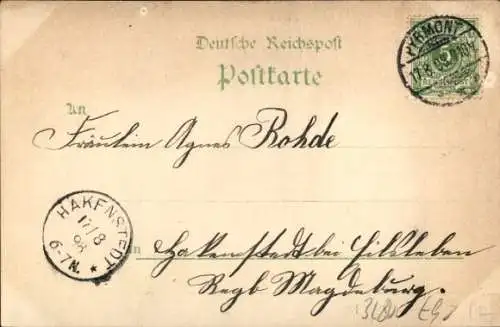 Deutsche Reichspost
Postkarte
PYRMONT
An
Fräulein Agnes Rohde
HAKENSTEDT
17/8
98
6-7N.
*
in
Hakenstedt bei Eilsleben
Regb Magdeburg.